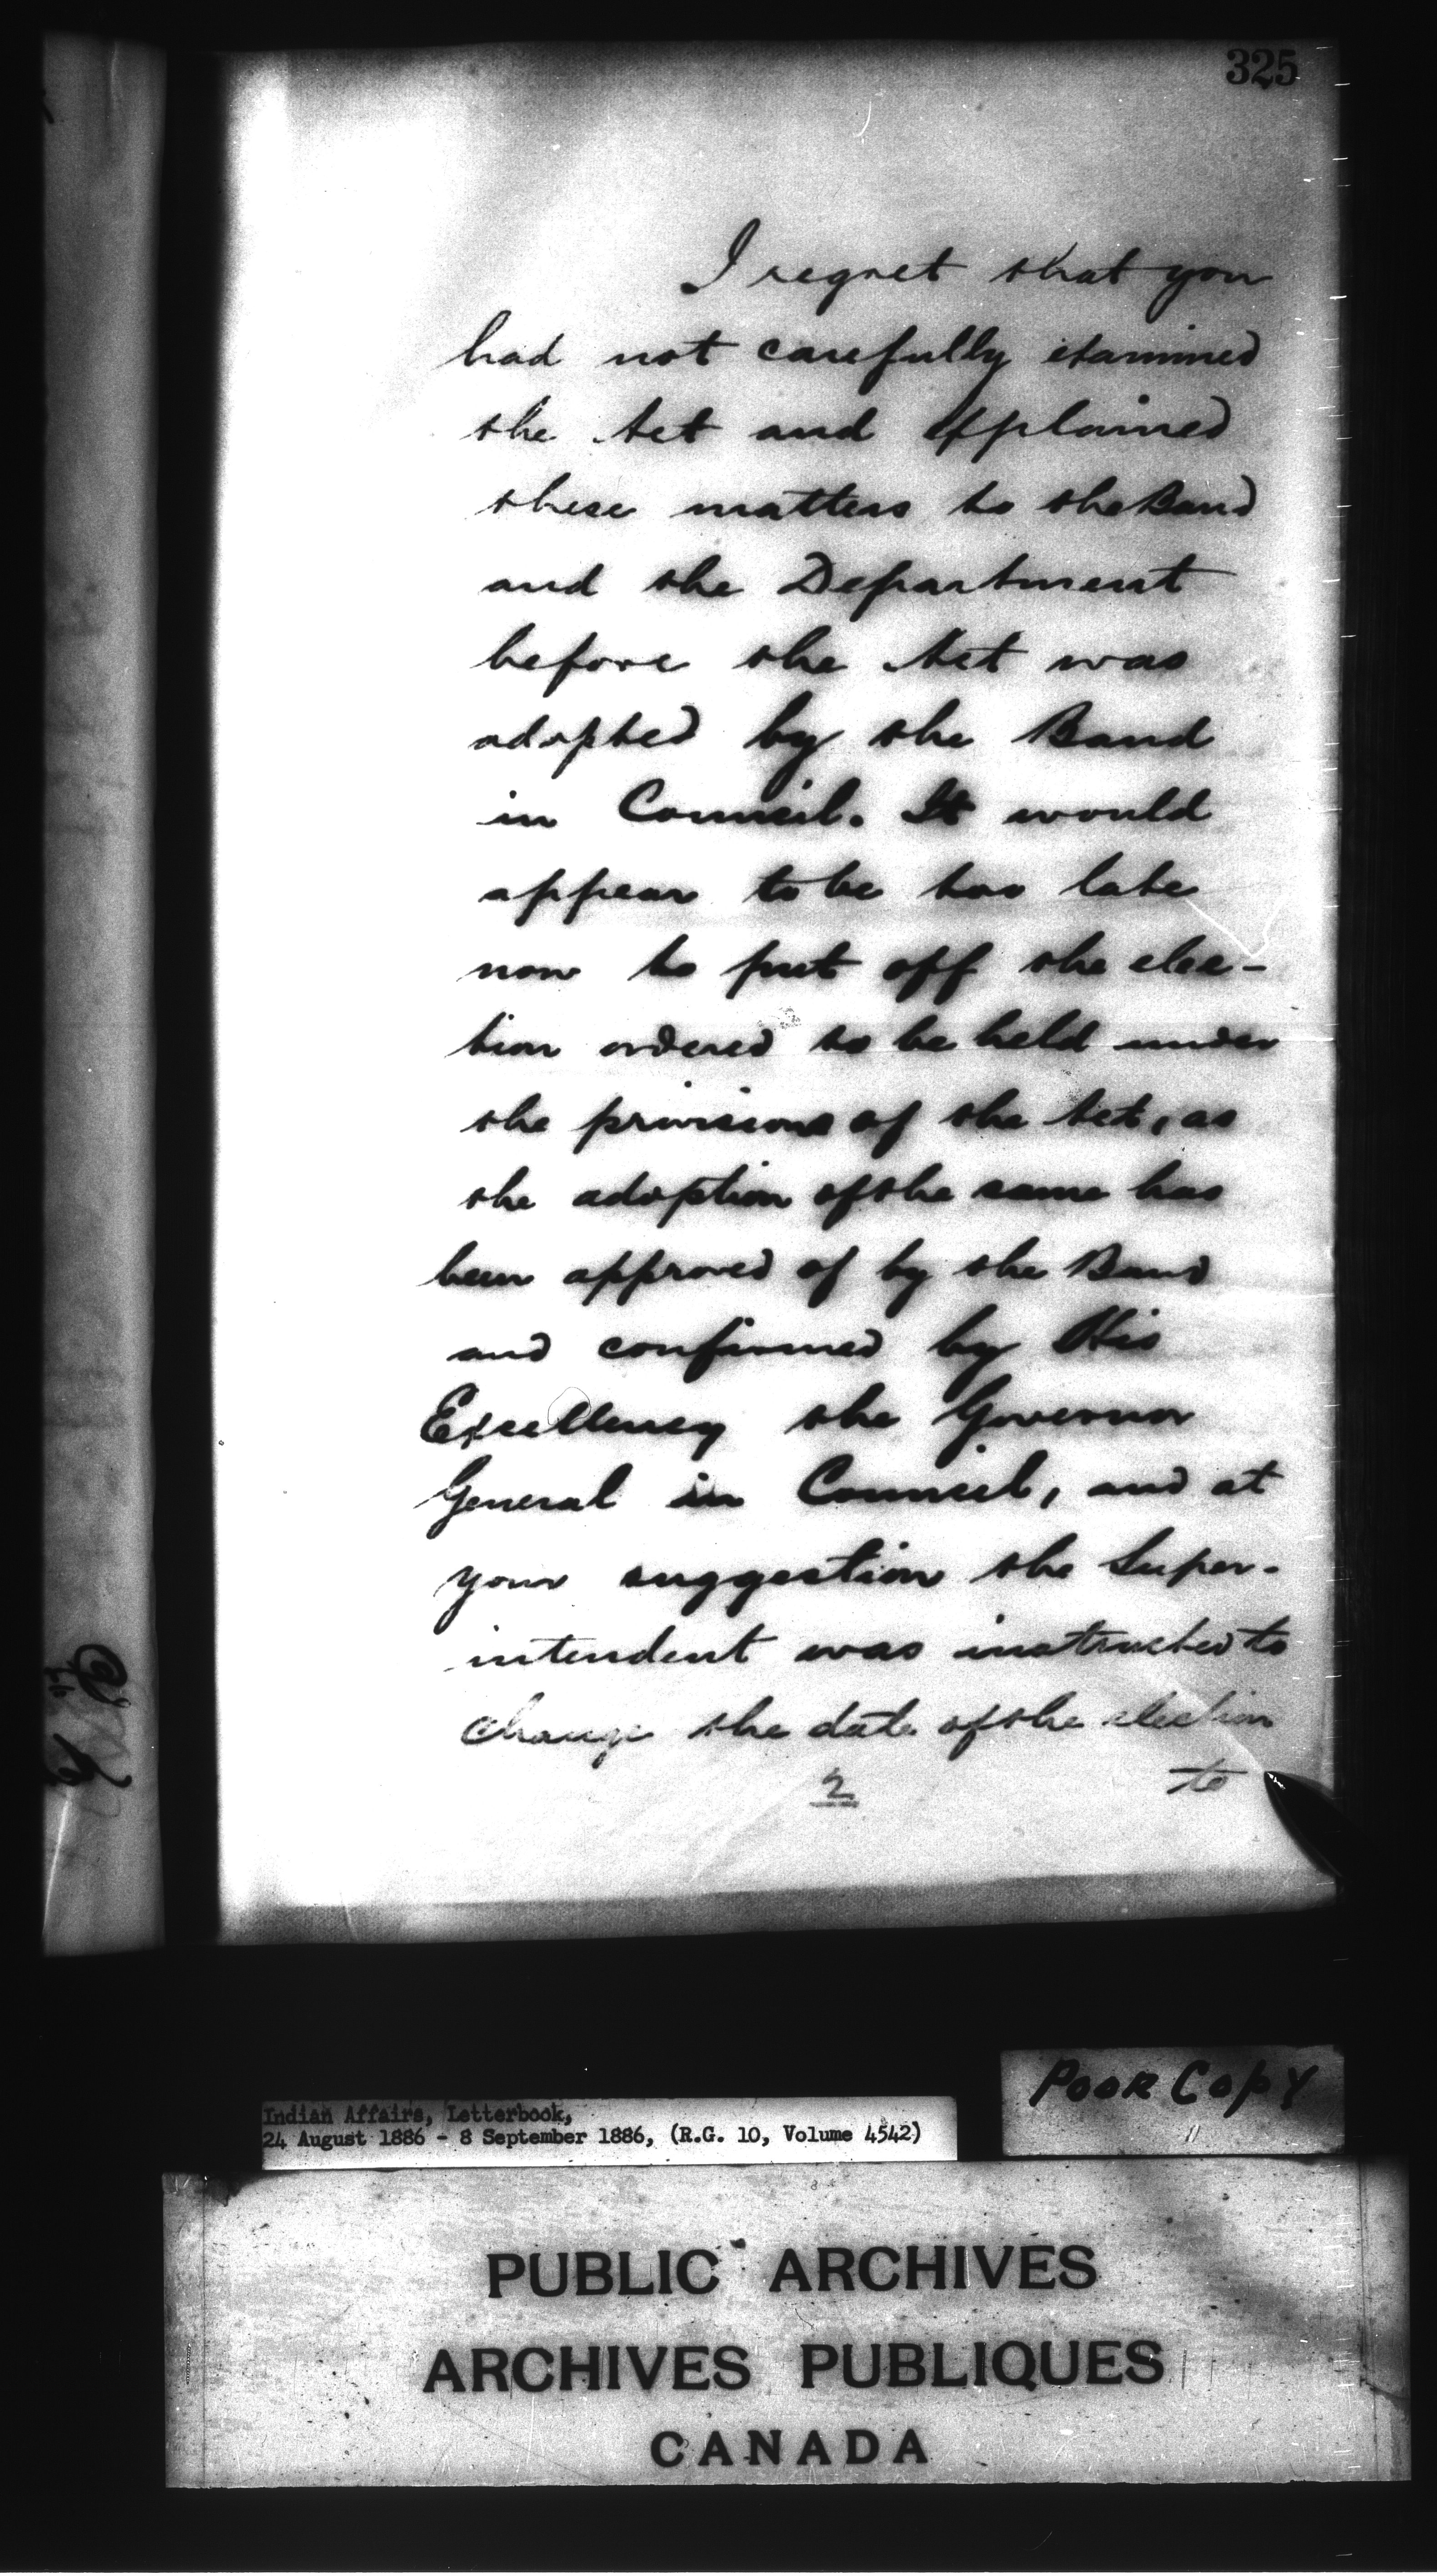 325
I regret that you
had not carefully examined
the Act and explained
these matters to the Band
and the Department
before the Act was
adopted by the Band
in Council. It would
appear to be too late
now to put off the elec-
tion ordered to be held under
the provisions of the Act, as
the adoption of the same has
been approved of by the Band
and confirmed by His
Excellency the Governor
General in Council, and at
your suggestion the Super-
intendent was instructed to
change the date of the election
2 to
POOR COPY
Indian Affairs, Letterbook,
24 August 1886 - 8 September 1886, (R.G. 10, Volume 4542)
PUBLIC ARCHIVES
ARCHIVES PUBLIQUES
CANADA